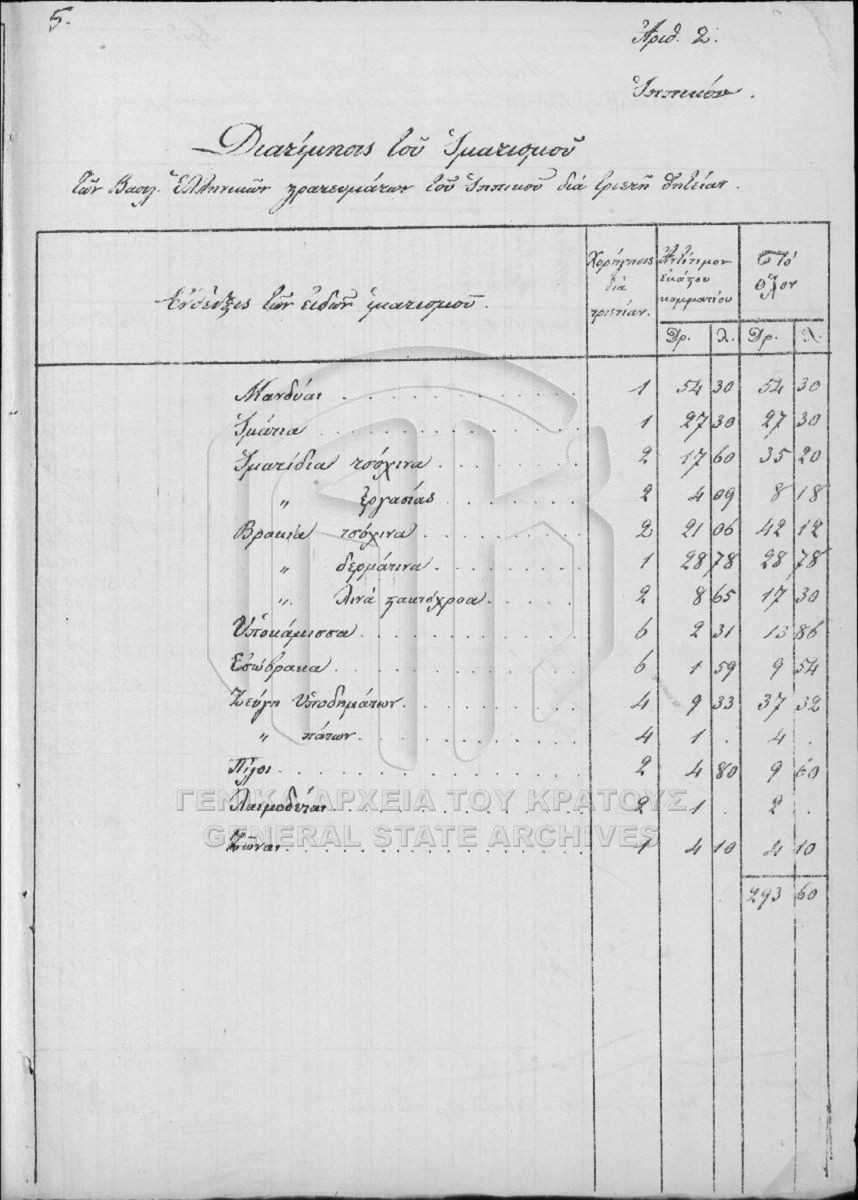 5.
Ἀριθ. 2.
Ἱππικόν.
Διατίμησις τοῦ ἱματισμοῦ
τῶν Βασιλ. Ἑλληνικῶν στρατευμάτων τοῦ Ἱππικοῦ διὰ τριετῆ θητείαν.
Ἔνδειξις τῶν εἰδῶν ἱματισμοῦ. Χορήγησις διὰ τριετίαν. Ἀντίτιμον ἑκάστου κομματίου Τὸ ὅλον
Δρ. Λ. Δρ. Λ.
Μανδύαι 1 54 30 54 30
Ἱμάτια 1 27 30 27 30
Ἱματίδια τσόχινα 2 17 60 35 20
„ ἐργασίας 2 4 09 8 18
Βρακία τσόχινα 2 21 06 42 12
„ δερμάτινα 1 28 78 28 78
„ λινά στακτόχροα 2 8 65 17 30
Ὑποκάμισσα 6 2 31 13 86
Ἐσώβρακα 6 1 59 9 54
Ζεύγη Ὑποδημάτων 4 9 33 37 32
„ πάτων 4 1 . 4 .
Πῖλοι 2 4 80 9 60
Λαιμοδέται 2 1 . 2 .
Ζῶναι 1 4 10 4 10
293 60
ΓΕΝΙΚΑ ΑΡΧΕΙΑ ΤΟΥ ΚΡΑΤΟΥΣ
GENERAL STATE ARCHIVES